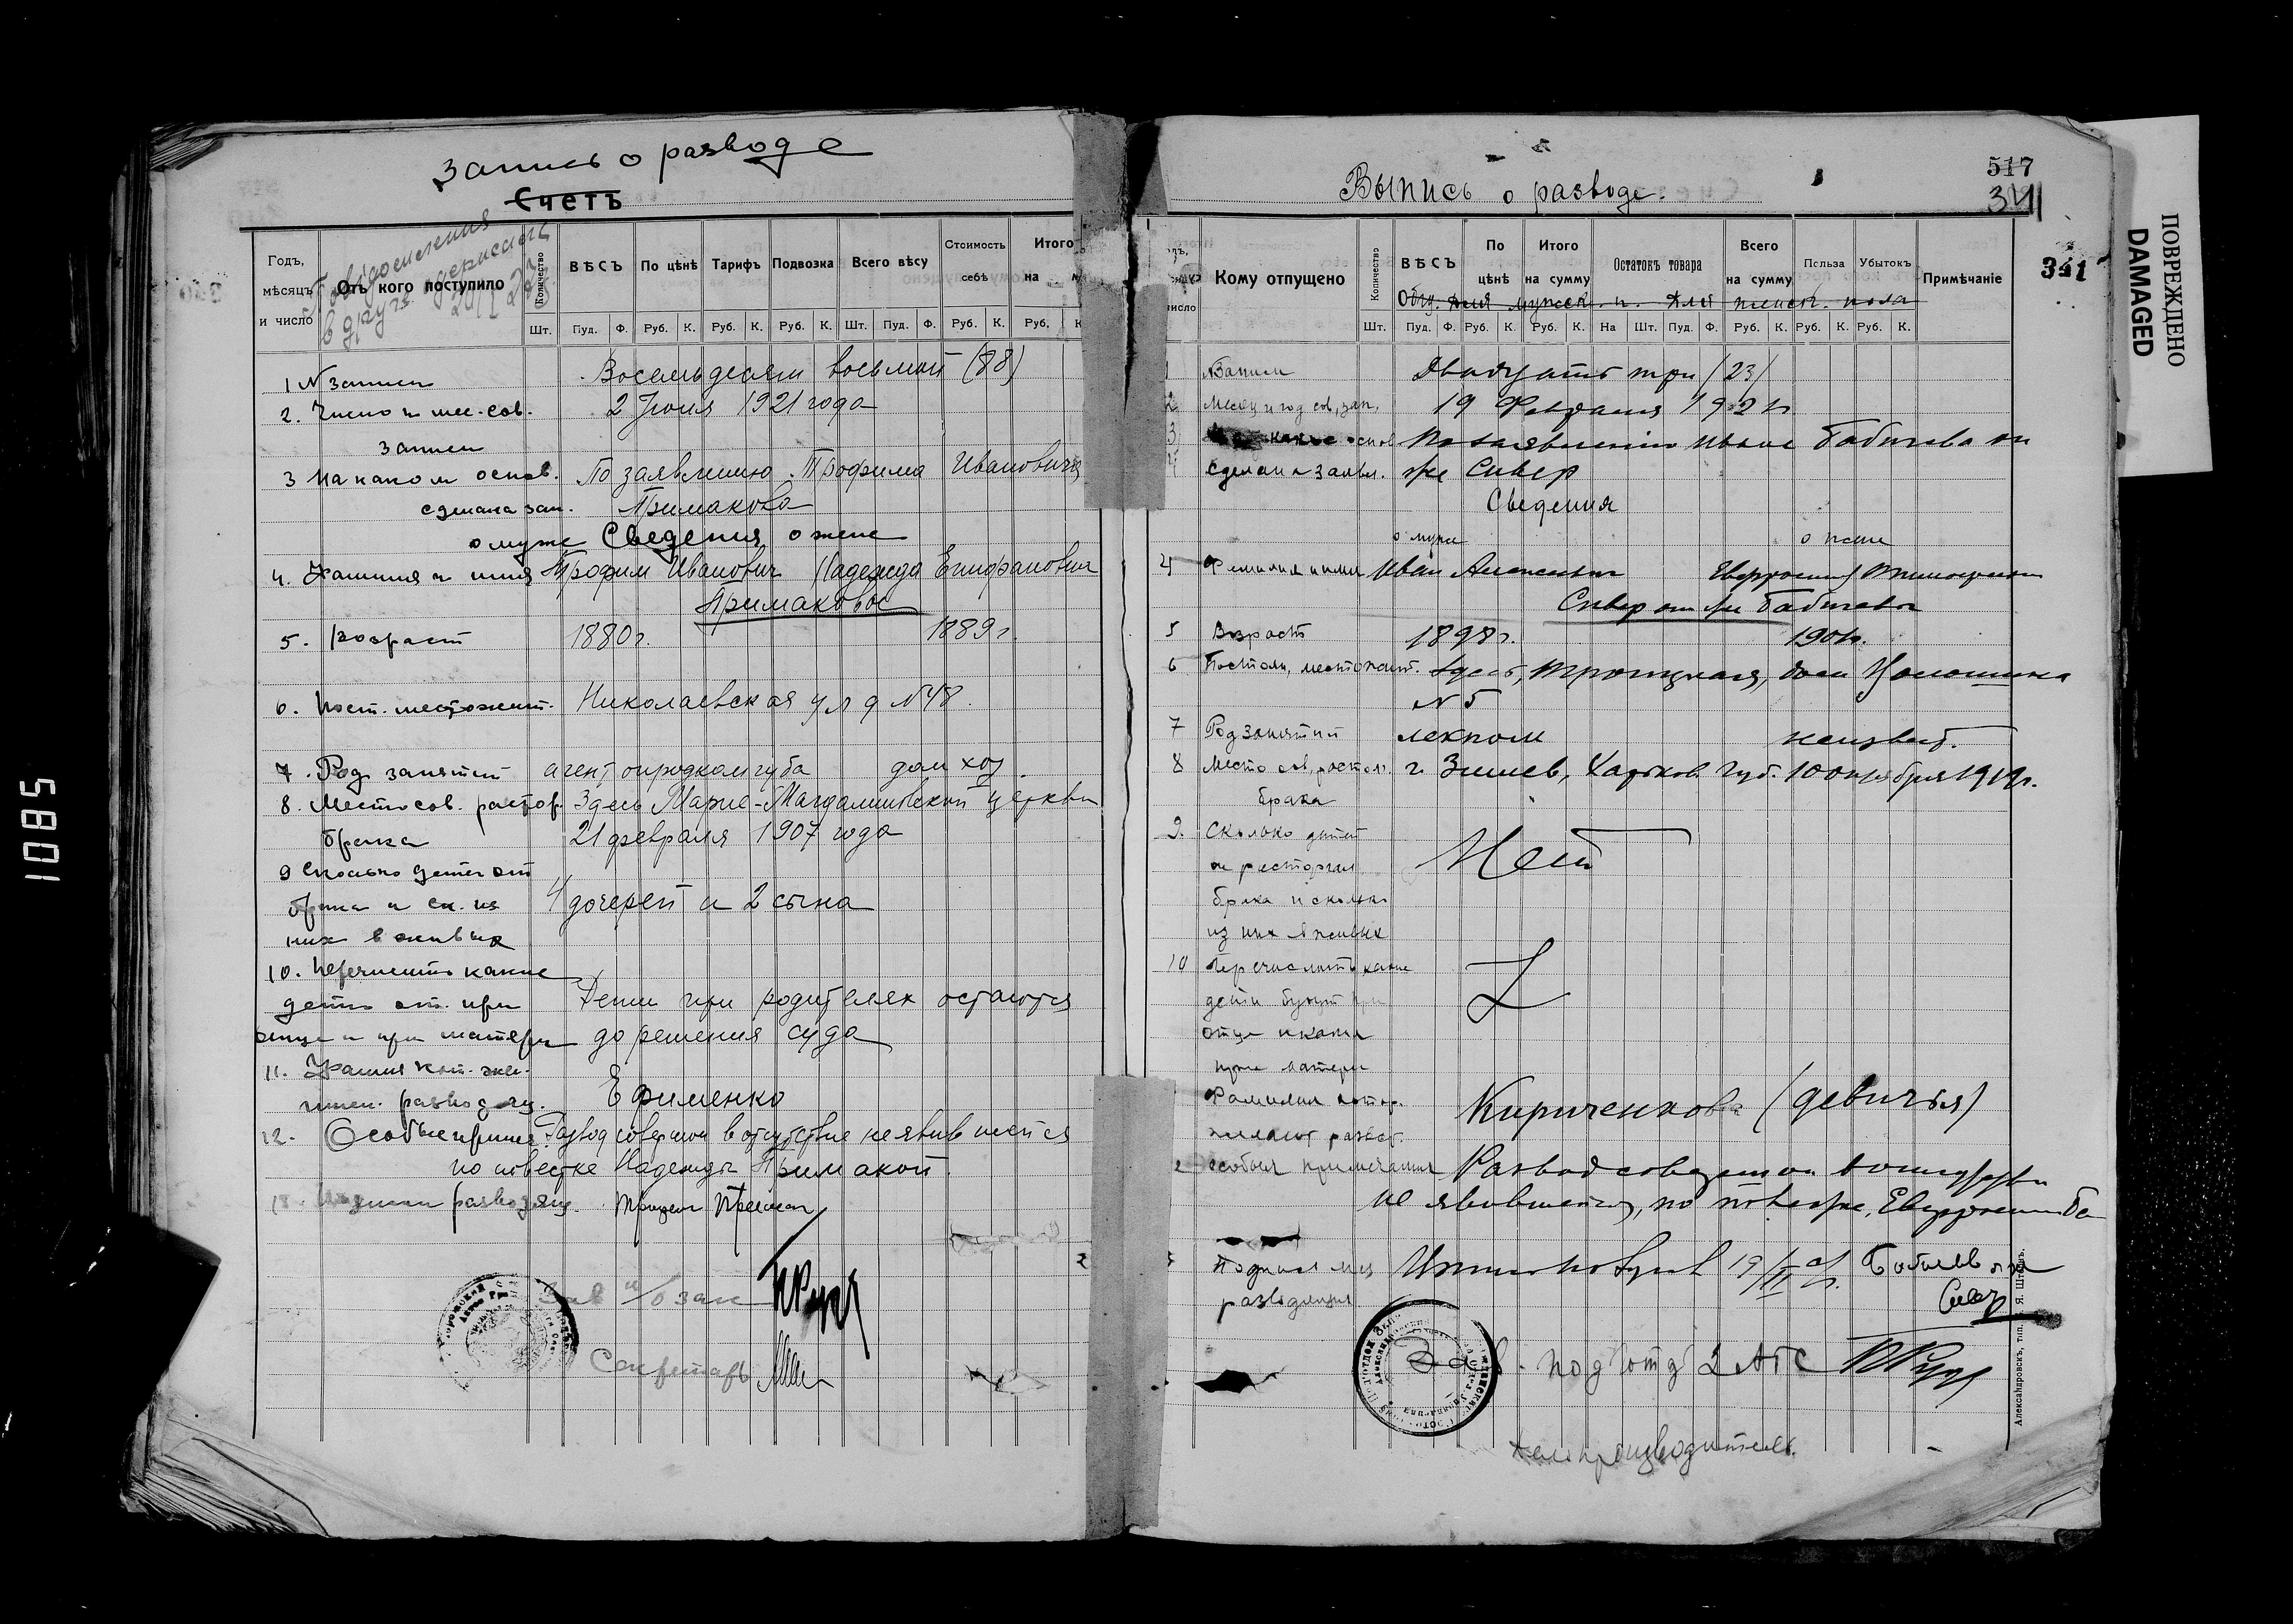 1085
Запись о разводе
Счетъ
Годъ, мѣсяцъ и число
Отъ кого поступило
Количество
ВѢСЪ
По цѣнѣ
Тарифъ
Подвозка
Всего вѣсу
Стоимость себѣ
Итого на
Шт. Пуд. Ф. Руб. К. Руб. К. Руб. К. Шт. Пуд. Ф. Руб. К. Руб. К
1 N записи Восемьдесят восьмой (88)
2. Число и мес. сов. 2 Июня 1921 года
записи
3 На каком основ. По заявлению Трофима Ивановича
сделана зап. Примакова
о муже Сведения о жене
4. Фамилия и имя Трофим Иванович Надежда Епифановна
Примаковы
5. Возраст 1880 г. 1889 г.
6. Пост. местожит. Николаевская ул д N 48.
7. Род занятий агент опродкомгуба дом хоз.
8. Место сов. растор. Здесь Марие-Магдалиновской церкви
брака 21 февраля 1907 года
9 Сколько детей от
брака и ск. из 4 дочерей и 2 сына
них в живых
10. Перечислить какие
дети ост. при Дети при родителях остаются
отце и при матери до решения суда
11. Фамил кот. жел.
имен. развод. Ефименко
12. Особые примеч. Развод совершен в отсутствие неявившейся
по повестке Надежды Примакой.
13. Подписи разводящ.
Зав п/о зап
Секретарь
Выпись о разводе.
517
341
341
ПОВРЕЖДЕНО
DAMAGED
Кому отпущено
Количество
ВѢСЪ
По цѣнѣ
Итого на сумму
Остатокъ товара
Всего на сумму
Польза
Убытокъ
Примѣчаніе
Общ. для мужск. п. для женск. пола
Шт. Пуд. Ф. Руб. К. Руб. К. На Шт. Пуд. Ф. Руб. К. Руб. К. Руб. К.
1 N Записи Двадцать три (23)
2 Месяц и год сов. зап. 19 Февраля 192 г.
3 какое основ По заявлению Ивана Бабичева он
сделана заявл. же Сивер
Сведения
о муже о жене
4 Фамилия и имя Иван Алексеевич
Сивер он же Бабичевы
5 Возраст 1898 г. 1901 г.
6 Постоян. местожит. Здесь, Троицкая, дом
N 5
7 Род занятий лекпом неизвест.
8 Место сов. растор. г. Змиев, Харьков губ. 10 октября 1919 г.
брака
9. Сколько детей
от расторгая Нет
брака и сколько
из них в живых
10 Перечислить какие
дети будут при
отце и какие
при матери
Фамилия котор. Кириченкова (девичья)
желают развод.
особыя примечания Развод совершен в отсутствии
не явившейся, по повестке, Евфросинии Ба
Подписи лиц 19/II 21 г.
разводящия
Зав. под'отд ЗАГС
Делопроизводитель.
Александровскъ, тип. Б. Я. Штернъ.